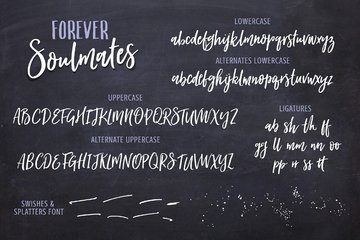 FOREVER
Soulmates
LOWERCASE
abcdefghijklmnopqrstuvwxyz
ALTERNATES LOWERCASE
abcdefghijklmnopqrstuvwxyz
UPPERCASE
ABCDEFGHIJKLMNOPQRSTUVWXYZ
ALTERNATE UPPERCASE
ABCDEFGHIJKLMNOPQRSTUVWXYZ
LIGATURES
ab sh th ff
gg ll mm nn oo
pp rr ss tt
SWISHES &
SPLATTERS FONT